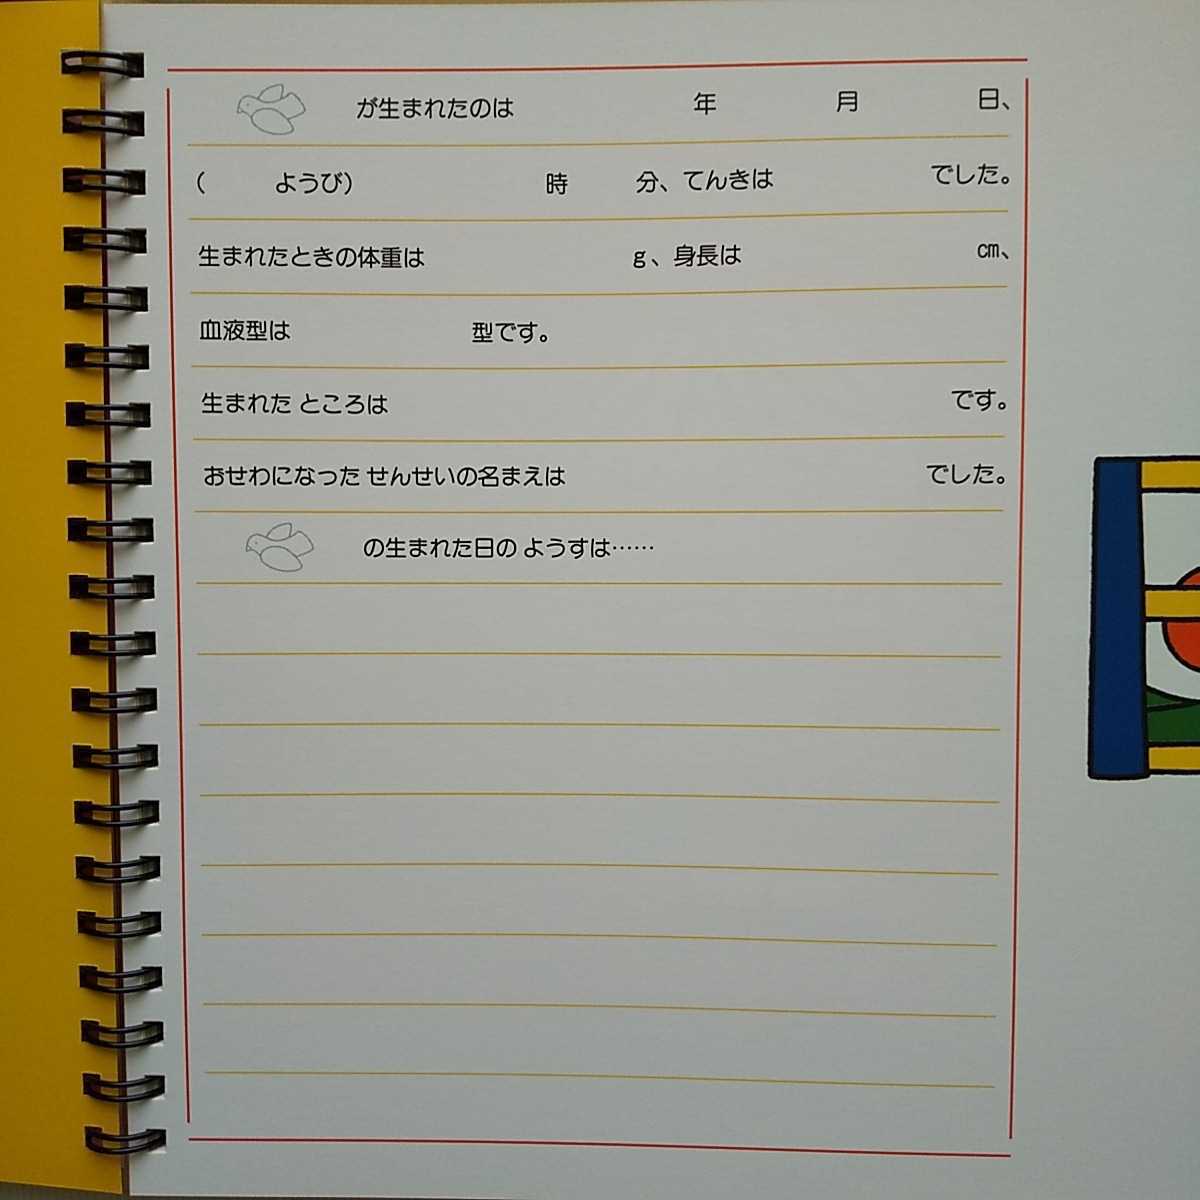 が生まれたのは 年 月 日、
( ようび) 時 分、てんきは でした。
生まれたときの体重は g、身長は cm、
血液型は 型です。
生まれた ところは です。
おせわになった せんせいの名まえは でした。
の生まれた日の ようすは……